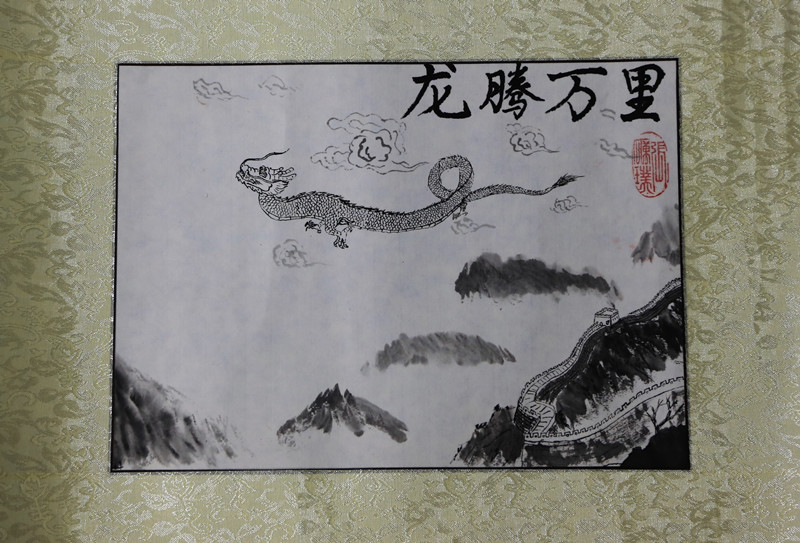 龙腾万里